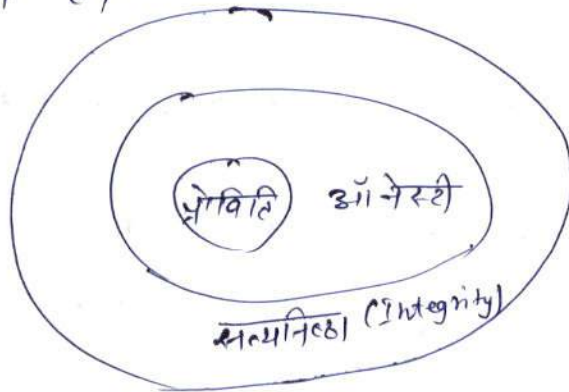 प्रोबिटि ऑनेस्टी
सत्यनिष्ठा (Integrity)